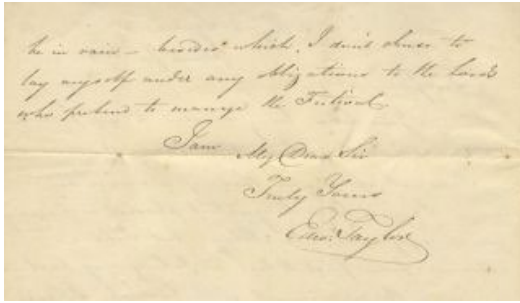 be in vain – besides which, I don't choose to
lay myself under any obligations to the Lords
who pretend to manage the Festival.
I am My Dear Sir
Truly Yours
Edwd. Taylor